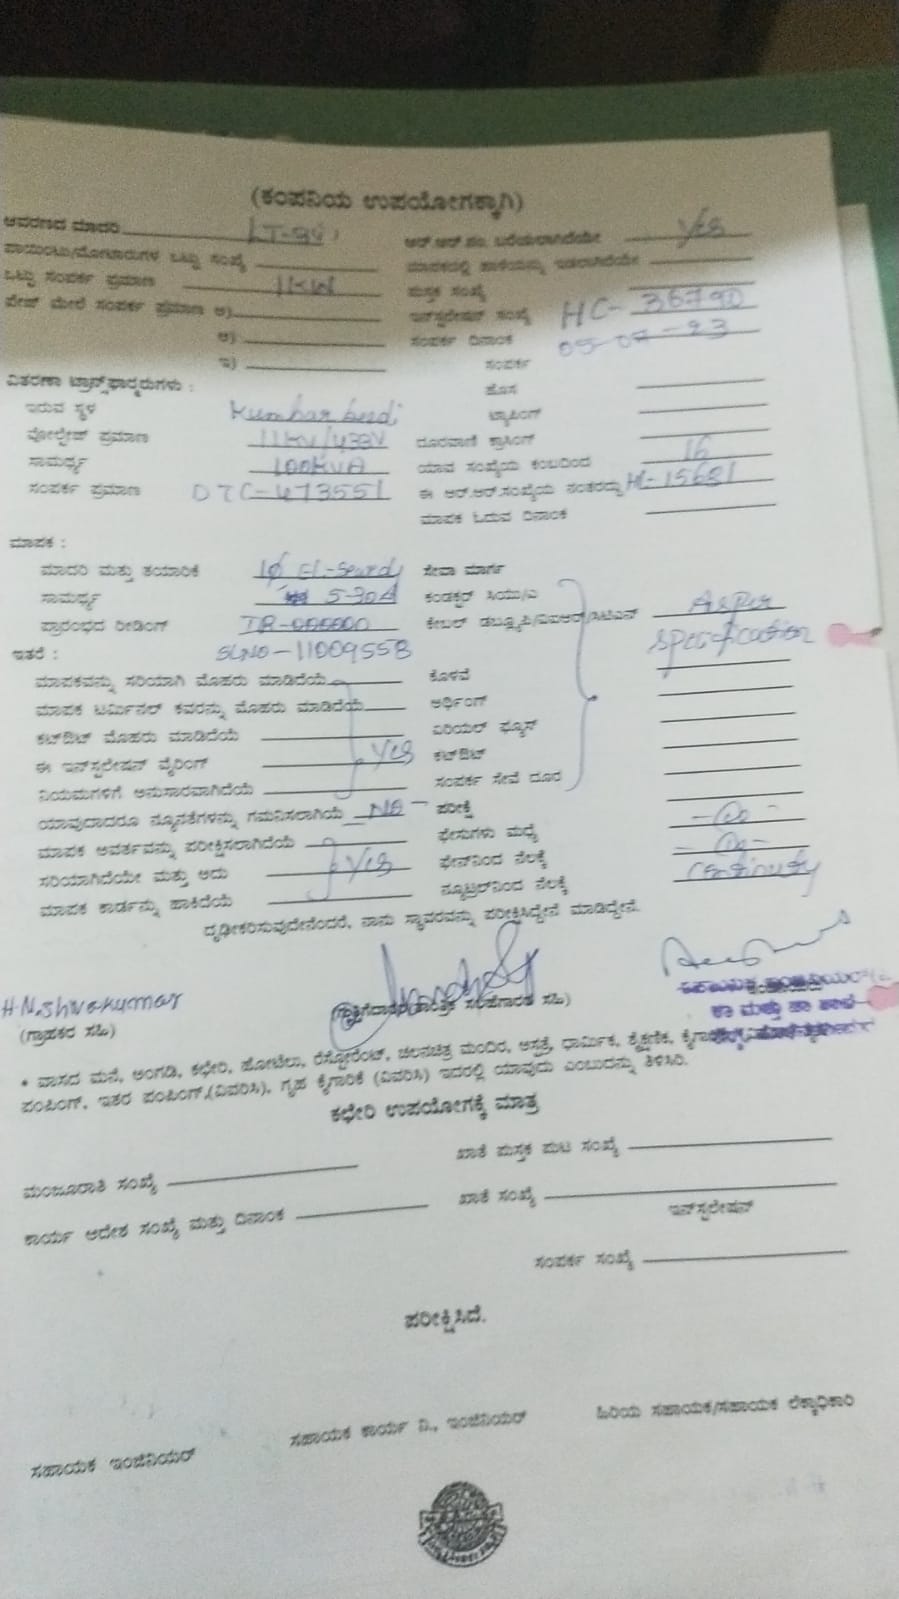 (ಕಂಪನಿಯ ಉಪಯೋಗಕ್ಕಾಗಿ)
ಆವರಣದ ಮಾದರಿ ಆರ್.ಆರ್.ನಂ. ಬರೆಯಲಾಗಿದೆಯೇ Yes
ಪಾಯಿಂಟು/ಮೋಟಾರುಗಳ ಒಟ್ಟು ಸಂಖ್ಯೆ ಮಾಪಕದಲ್ಲಿ ಹಾಳೆಯನ್ನು ಇಡಲಾಗಿದೆಯೇ
ಒಟ್ಟು ಸಂಪರ್ಕ ಪ್ರಮಾಣ 1KW ಪುಸ್ತಕ ಸಂಖ್ಯೆ
ಪೇಜ್ ಮೇಲೆ ಸಂಪರ್ಕ ಪ್ರಮಾಣ ಅ) ಇನ್‌ಸ್ಟಲೇಷನ್ ಸಂಖ್ಯೆ HC- 36790
ಆ) ಸಂಪರ್ಕ ದಿನಾಂಕ 05-07-23
ಇ) ಸಂಪರ್ಕ
ವಿತರಣಾ ಟ್ರಾನ್ಸ್‌ಫಾರ್ಮರುಗಳು : ಹೊಸ
ಇರುವ ಸ್ಥಳ Kumbar beedi ಟ್ಯಾಪಿಂಗ್
ವೋಲ್ಟೇಜ್ ಪ್ರಮಾಣ 11KV/433V ದೂರವಾಣಿ ಕ್ರಾಸಿಂಗ್
ಸಾಮರ್ಥ್ಯ 100KVA ಯಾವ ಸಂಖ್ಯೆಯ ಕಂಬದಿಂದ 16
ಸಂಪರ್ಕ ಪ್ರಮಾಣ DTC-473551 ಈ ಆರ್.ಆರ್.ಸಂಖ್ಯೆಯ ನಂತರದ್ದು HL-15681
ಮಾಪಕ ಓದುವ ದಿನಾಂಕ
ಮಾಪಕ :
ಮಾದರಿ ಮತ್ತು ತಯಾರಿಕೆ 1Ø ಸೇವಾ ಮಾರ್ಗ
ಸಾಮರ್ಥ್ಯ 5-30A ಕಂಡಕ್ಟರ್ ಸಿಯು/ಎ
ಪ್ರಾರಂಭದ ರೀಡಿಂಗ್ IR-000000 ಕೇಬಲ್ ಡಬ್ಲ್ಯೂಪಿ/ಐಐಆರ್/ಸಿಟಿಎಸ್ Asper
ಇತರೆ : SLNO-11009558 specification
ಮಾಪಕವನ್ನು ಸರಿಯಾಗಿ ಮೊಹರು ಮಾಡಿದೆಯೆ ಕೊಳವೆ
ಮಾಪಕ ಟರ್ಮಿನಲ್ ಕವರನ್ನು ಮೊಹರು ಮಾಡಿದೆಯೆ ಅರ್ಥಿಂಗ್
ಕಟ್‌ಔಟ್ ಮೊಹರು ಮಾಡಿದೆಯೆ ಏರಿಯಲ್ ಫ್ಯೂಸ್
ಈ ಇನ್‌ಸ್ಟಲೇಷನ್ ವೈರಿಂಗ್ Yes ಕಟ್‌ಔಟ್
ನಿಯಮಗಳಿಗೆ ಅನುಸಾರವಾಗಿದೆಯೆ ಸಂಪರ್ಕ ಸೇವೆ ದೂರ
ಯಾವುದಾದರೂ ನ್ಯೂನತೆಗಳನ್ನು ಗಮನಿಸಲಾಗಿಯೆ No - ಪರೀಕ್ಷೆ
ಮಾಪಕ ಆವರ್ತವನ್ನು ಪರೀಕ್ಷಿಸಲಾಗಿದೆಯೆ ಫೇಸುಗಳು ಮಧ್ಯೆ
ಸರಿಯಾಗಿದೆಯೇ ಮತ್ತು ಅದು Yes ಫೇಸ್‌ನಿಂದ ನೆಲಕ್ಕೆ
ಮಾಪಕ ಕಾರ್ಡನ್ನು ಹಾಕಿದೆಯೆ ನ್ಯೂಟ್ರಲ್‌ನಿಂದ ನೆಲಕ್ಕೆ continuity
ದೃಢೀಕರಿಸುವುದೇನೆಂದರೆ, ನಾನು ಸ್ಥಾವರವನ್ನು ಪರೀಕ್ಷಿಸಿದ್ದೇನೆ ಮಾಡಿದ್ದೇನೆ.
H.N.Shivakumar
(ಗ್ರಾಹಕರ ಸಹಿ)
• ವಾಸದ ಮನೆ, ಅಂಗಡಿ, ಕಛೇರಿ, ಹೋಟೆಲು, ರೆಸ್ಟೋರೆಂಟ್, ಚಲನಚಿತ್ರ ಮಂದಿರ, ಆಸ್ಪತ್ರೆ, ಧಾರ್ಮಿಕ, ಶೈಕ್ಷಣಿಕ,
ಪಂಪಿಂಗ್, ಇತರ ಪಂಪಿಂಗ್,(ವಿವರಿಸಿ), ಗೃಹ ಕೈಗಾರಿಕೆ (ವಿವರಿಸಿ) ಇದರಲ್ಲಿ ಯಾವುದು ಎಂಬುದನ್ನು ತಿಳಿಸಿರಿ.
ಕಛೇರಿ ಉಪಯೋಗಕ್ಕೆ ಮಾತ್ರ
ಮಂಜೂರಾತಿ ಸಂಖ್ಯೆ ಖಾತೆ ಪುಸ್ತಕ ಪುಟ ಸಂಖ್ಯೆ
ಕಾರ್ಯ ಆದೇಶ ಸಂಖ್ಯೆ ಮತ್ತು ದಿನಾಂಕ ಖಾತೆ ಸಂಖ್ಯೆ
ಇನ್‌ಸ್ಟಲೇಷನ್
ಸಂಪರ್ಕ ಸಂಖ್ಯೆ
ಪರೀಕ್ಷಿಸಿದೆ.
ಸಹಾಯಕ ಇಂಜಿನಿಯರ್ ಸಹಾಯಕ ಕಾರ್ಯ ನಿ., ಇಂಜಿನಿಯರ್ ಹಿರಿಯ ಸಹಾಯಕ/ಸಹಾಯಕ ಲೆಕ್ಕಾಧಿಕಾರಿ